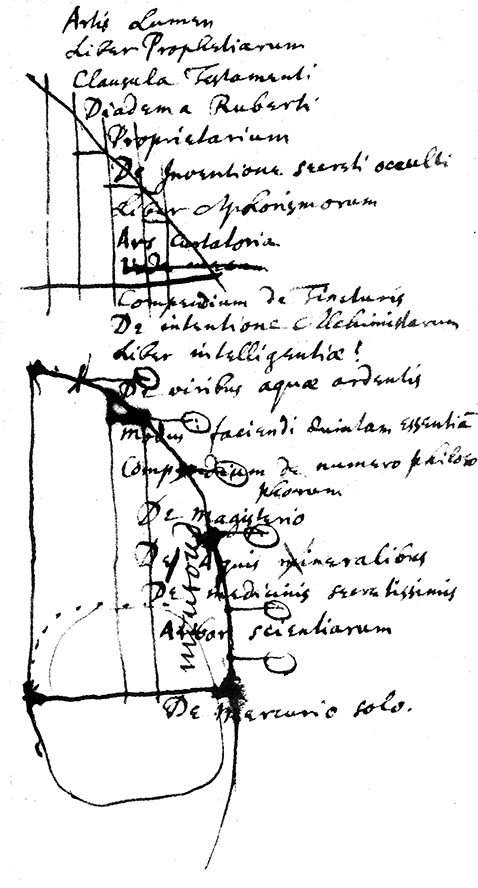 Artis Lumen
Liber Prophetiarum
Clausula Testamenti
Diadema Ruberti
Proprietarium
De Inventione secreti occulti
Liber Aphorismorum
Ars
Compendium de Tincturis
De intentione Alchimistarum
Liber intelligentiæ!
De viribus aquæ ardentis
modus faciendi quintam essentiā
Compendium de numero philoso
phorum
De magisterio
De Aquis mineralibus
De medicinis secretissimis
Arbor scientiarum
De mercurio solo.